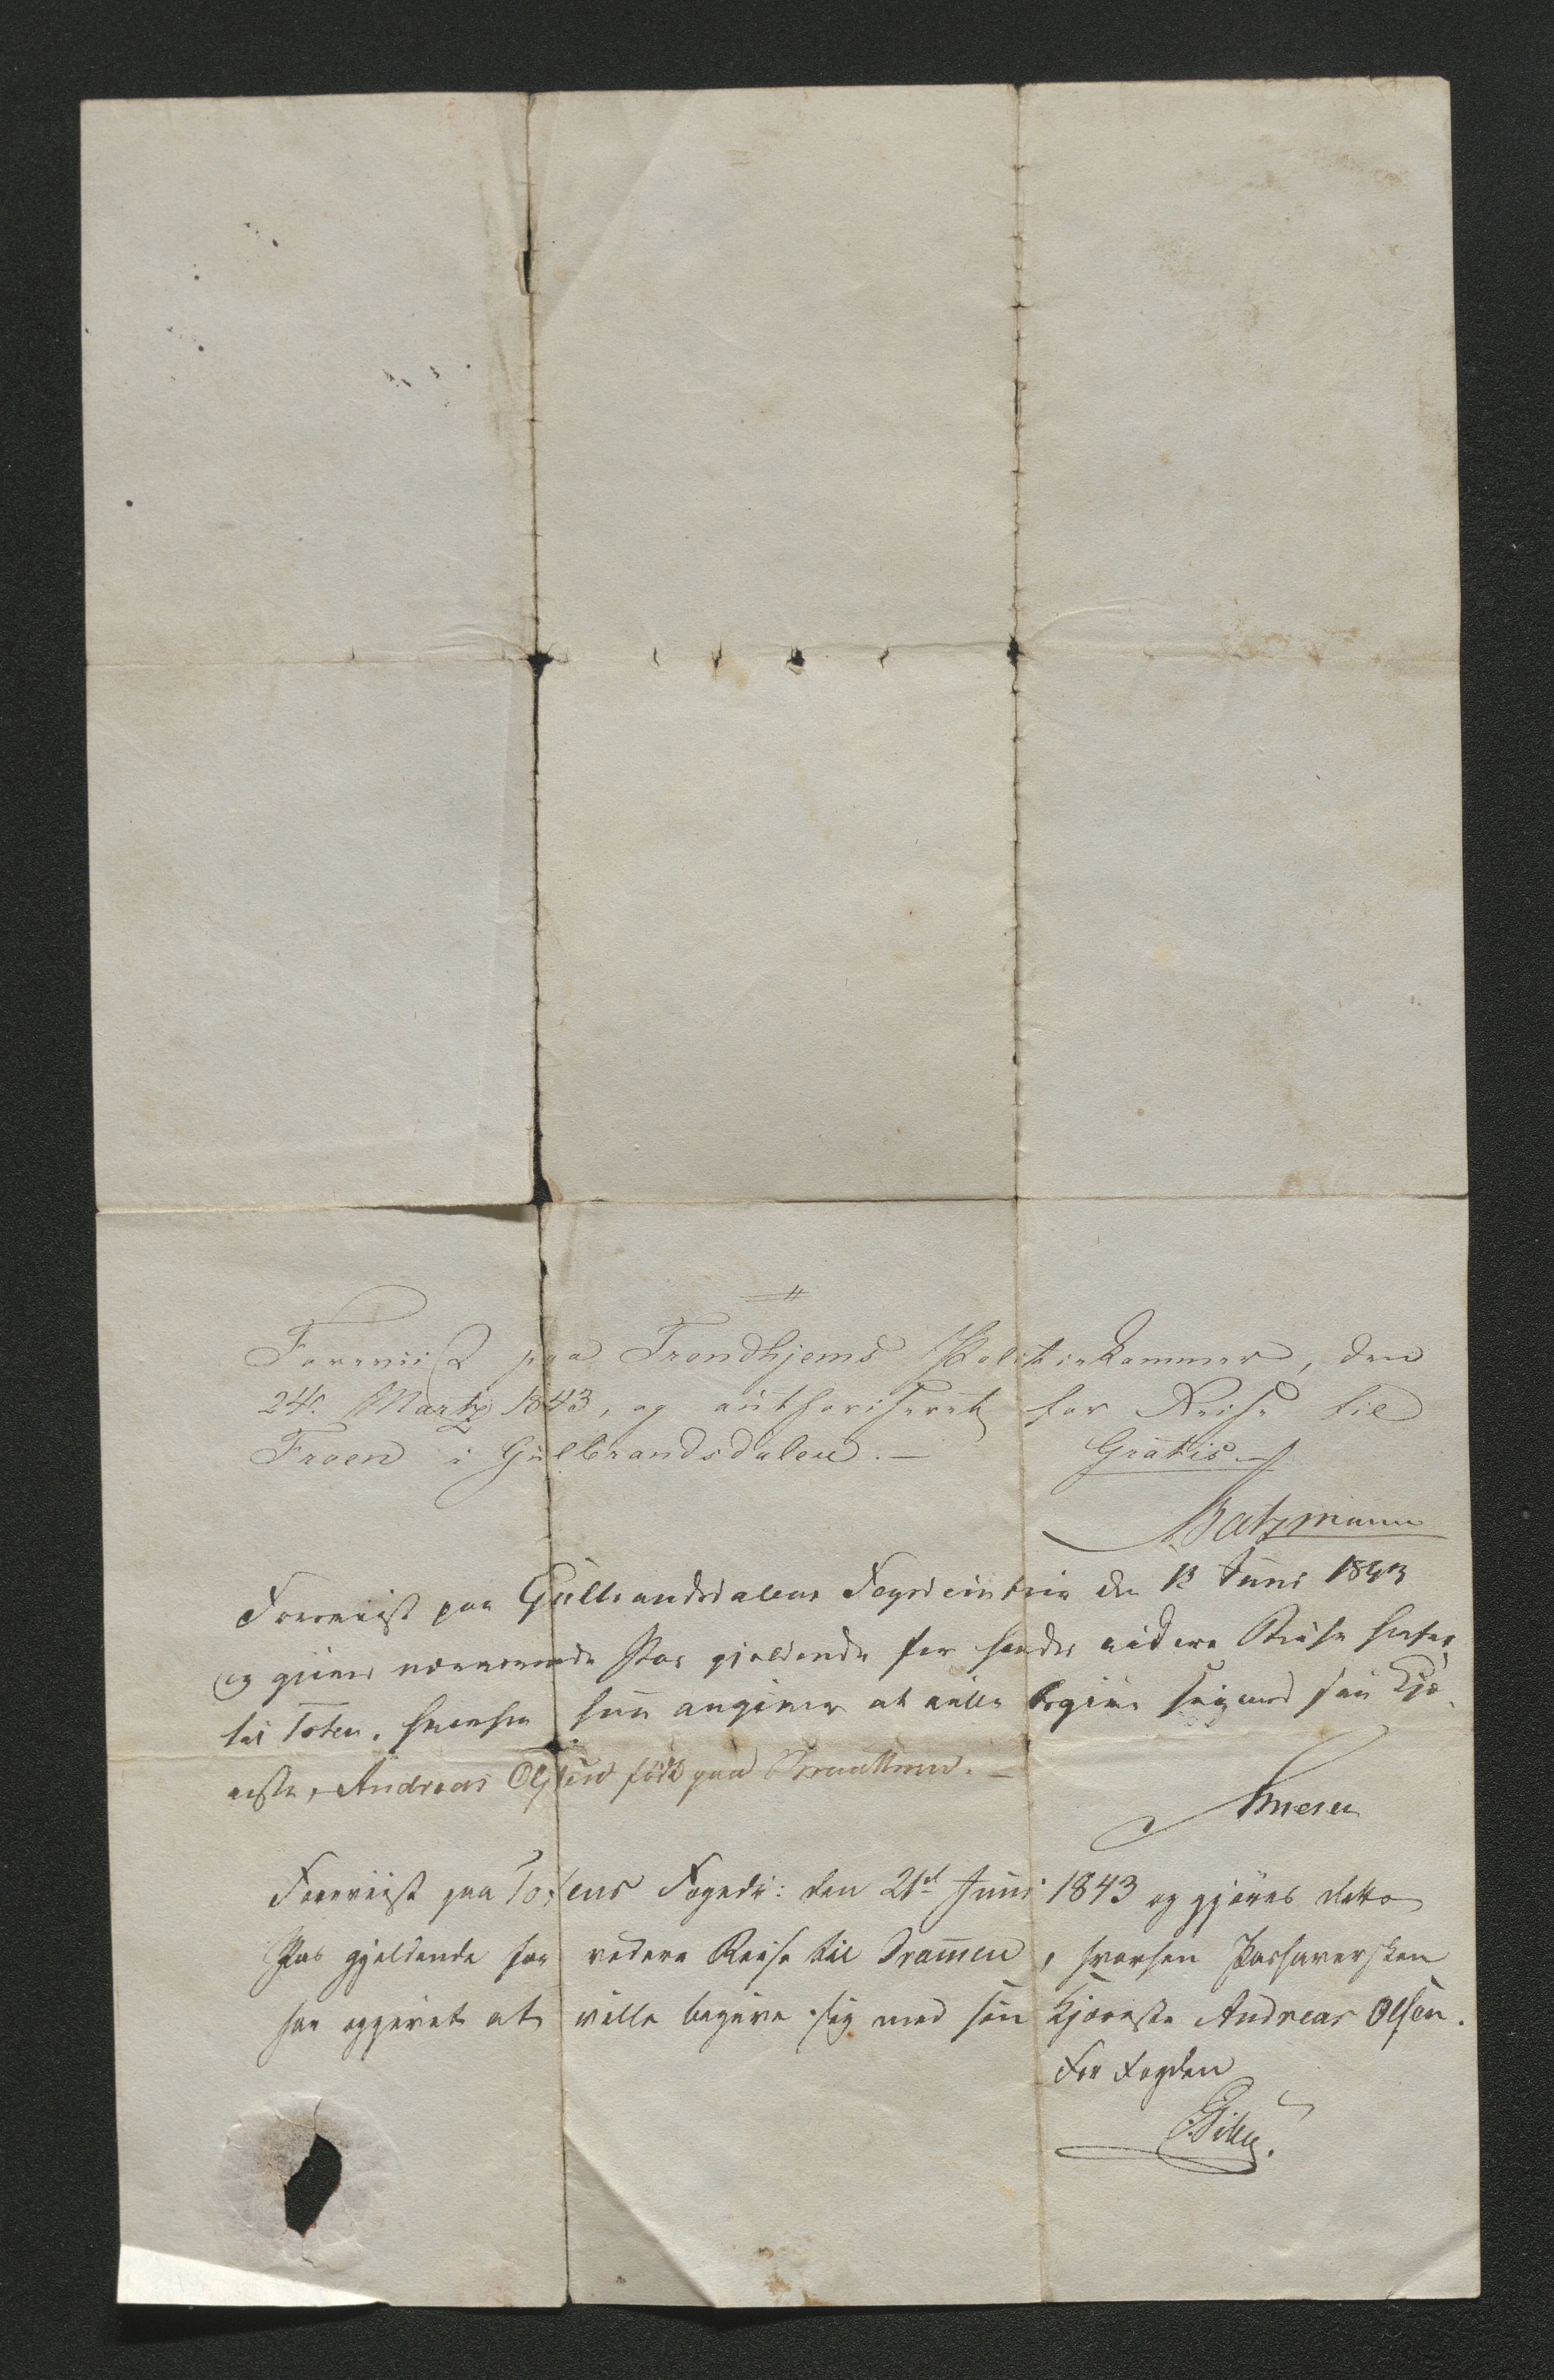 Foreviist paa Trondhjems Politiekammer, den
24de Martz 1843, og authoriseret for Reise til
Froen i Gulbrandsdalen. — Gratis
Batzmann
Foreviist paa Gulbrandsdalens Fogdecontoir den 13 Juni 1843
og gives nærværende Pas gjældende for hendes videre Reise herfra
til Toten, hvorhen hun angiver at ville begive sig med sin Kjæ-
reste, Andreas Olsen født paa
Foreviist paa Totens Fogderi: den 21d Juni 1843 og gjøres dette
Pas gjældende for videre Reise til Dramen, hvorhen Pashaversken
har opgivet at ville begive sig med sin Kjæreste Andreas Olsen.
For Fogden